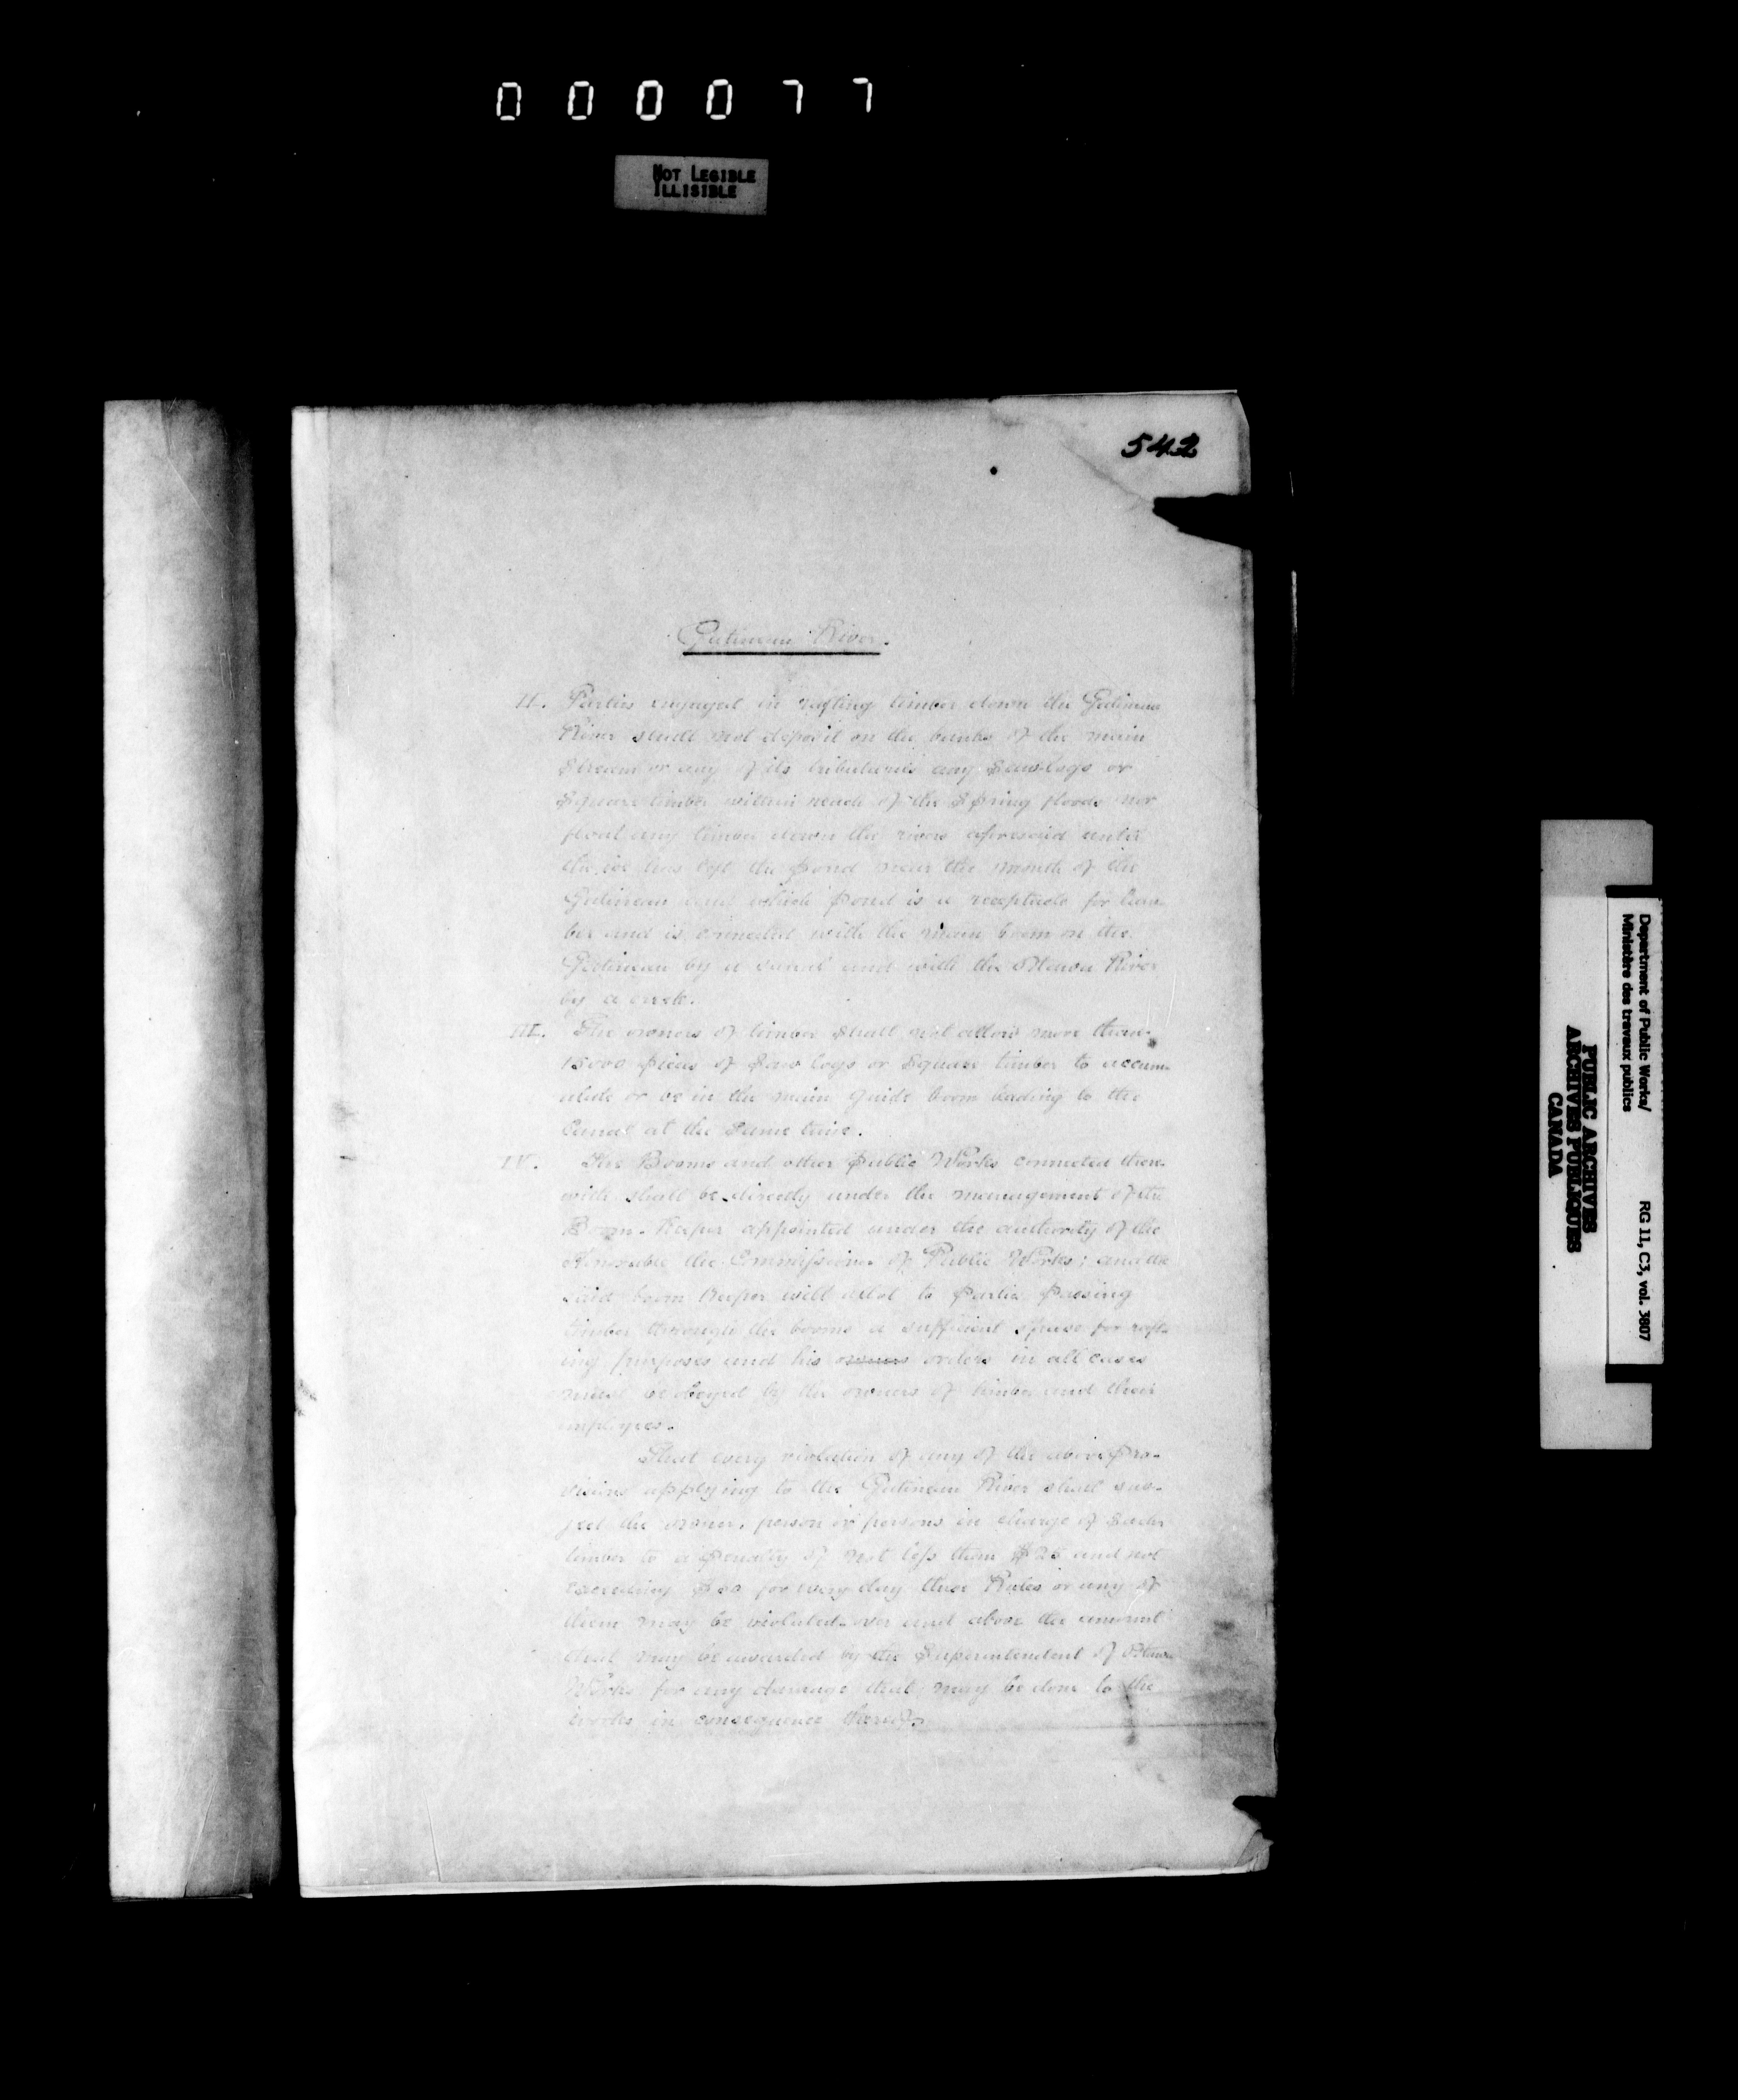 000077
NOT LEGIBLE
ILLISIBLE
542
Gatineau River.
II. Parties engaged in rafting timber down the Gatineau
River shall not deposit on the banks of the main
Stream or any of its tributaries any Saw-logs or
Square timber within reach of the Spring floods nor
float any timber down the river aforesaid until
the ice has left the pond near the mouth of the
Gatineau and which pond is a receptacle for
ber and is connected with the main boom on the
Gatineau by a canal and with the Ottawa River
by a creek.
III. The owners of timber shall not allow more than
15000 pieces of Saw logs or Square timber to accum-
ulate or be in the main guide boom leading to the
Canal at the same time.
IV. The Booms and other public Works connected there-
with shall be directly under the management of the
Boom-Keeper appointed under the authority of the
Honorable the Commissioner of Public Works; and the
said boom Keeper will allot to parties passing
timber through the booms a sufficient space for raft-
ing purposes and his owners orders in all cases
must be obeyed by the owners of timber and their
employees.
That every violation of any of the above pro-
visions applying to the Gatineau River shall sub-
ject the owner, person or persons in charge of such
timber to a penalty of not less than $25 and not
exceeding for every day these Rules or any of
them may be violated over and above the amount
that may be awarded by the Superintendent of Ottawa
Works for any damage that may be done to the
works in consequence thereof.
Department of Public Works/
Ministère des travaux publics
RG 11, C3, vol. 3807
PUBLIC ARCHIVES
ARCHIVES PUBLIQUES
CANADA